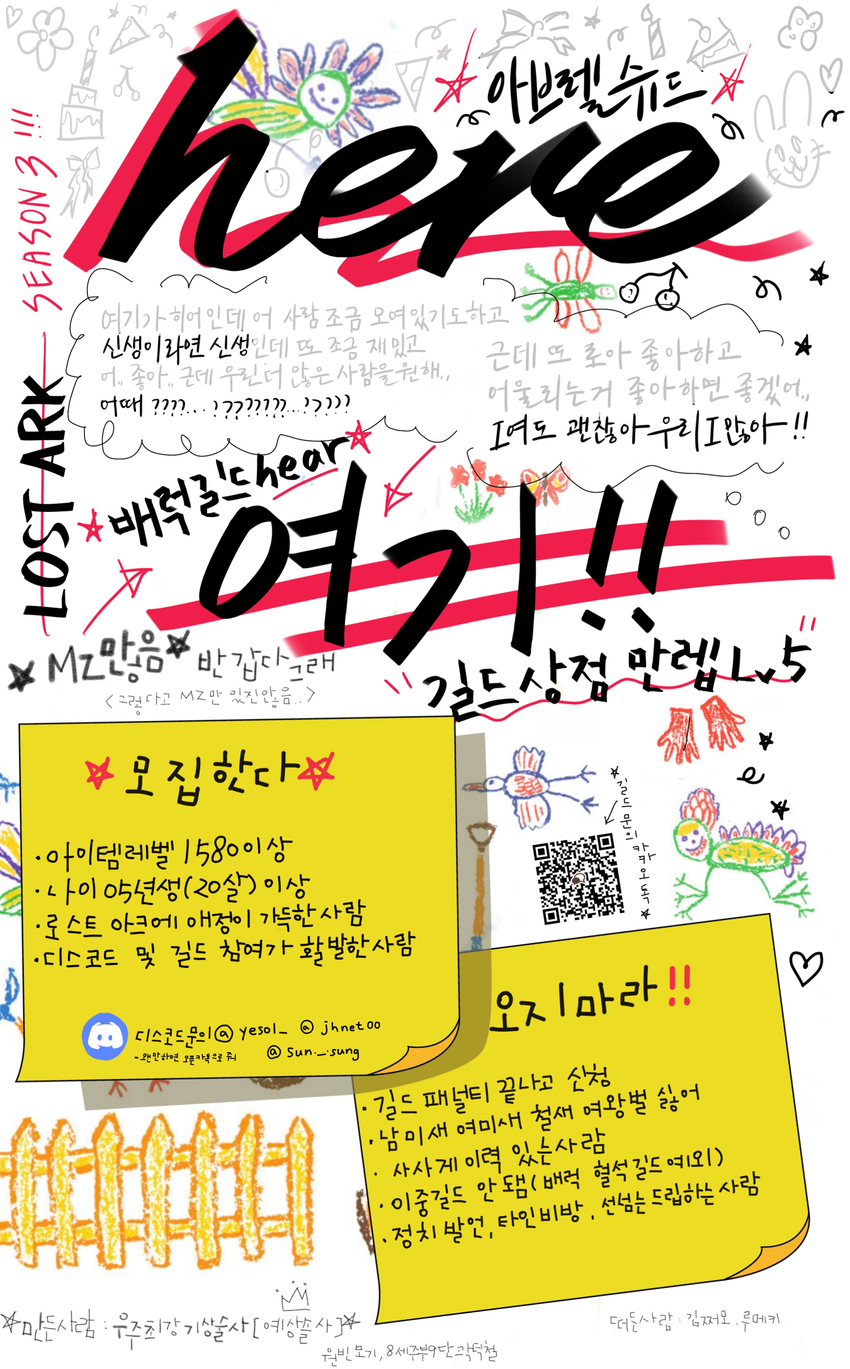 아브렐슈드
here
SEASON 3 !!!
LOST ARK
여기가 히어인데 어 사람 조금 모여있기도하고
신생이라면 신생인데 또 조금 재밌고
어.. 좋아.. 근데 우린 더 많은 사람을 원해..
어때 ????...!???????...!?????
근데 또 로아 좋아하고
어울리는거 좋아하면 좋겠어..
I여도 괜찮아 우리 I많아!!
배럭길드 hear
여기!!
MZ많음 반갑다그래
<그렇다고 MZ만 있진않음..>
"길드상점 만렙 Lv5"
모집한다
·아이템레벨 1580이상
·나이 05년생(20살) 이상
·로스트 아크에 애정이 가득한 사람
·디스코드 및 길드 참여가 활발한 사람
디스코드문의 @ yesol_ @ jhnet00
-왠만하면 오픈카톡으로 줘 @ sun._.sung
길드문의 카카오톡
오지마라!!
·길드 패널티 끝나고 신청
·남미새 여미새 철새 여왕벌 싫어
·사사게 이력 있는사람
·이중길드 안됌(배럭 혈석길드 예외)
·정치 발언, 타인비방, 선넘는드립하는 사람
만든사람 : 우주최강 기상술사 [예상술사]
원빈모기, 8세주부9단곽덕철
떠든사람 : 김쩌모, 루메키